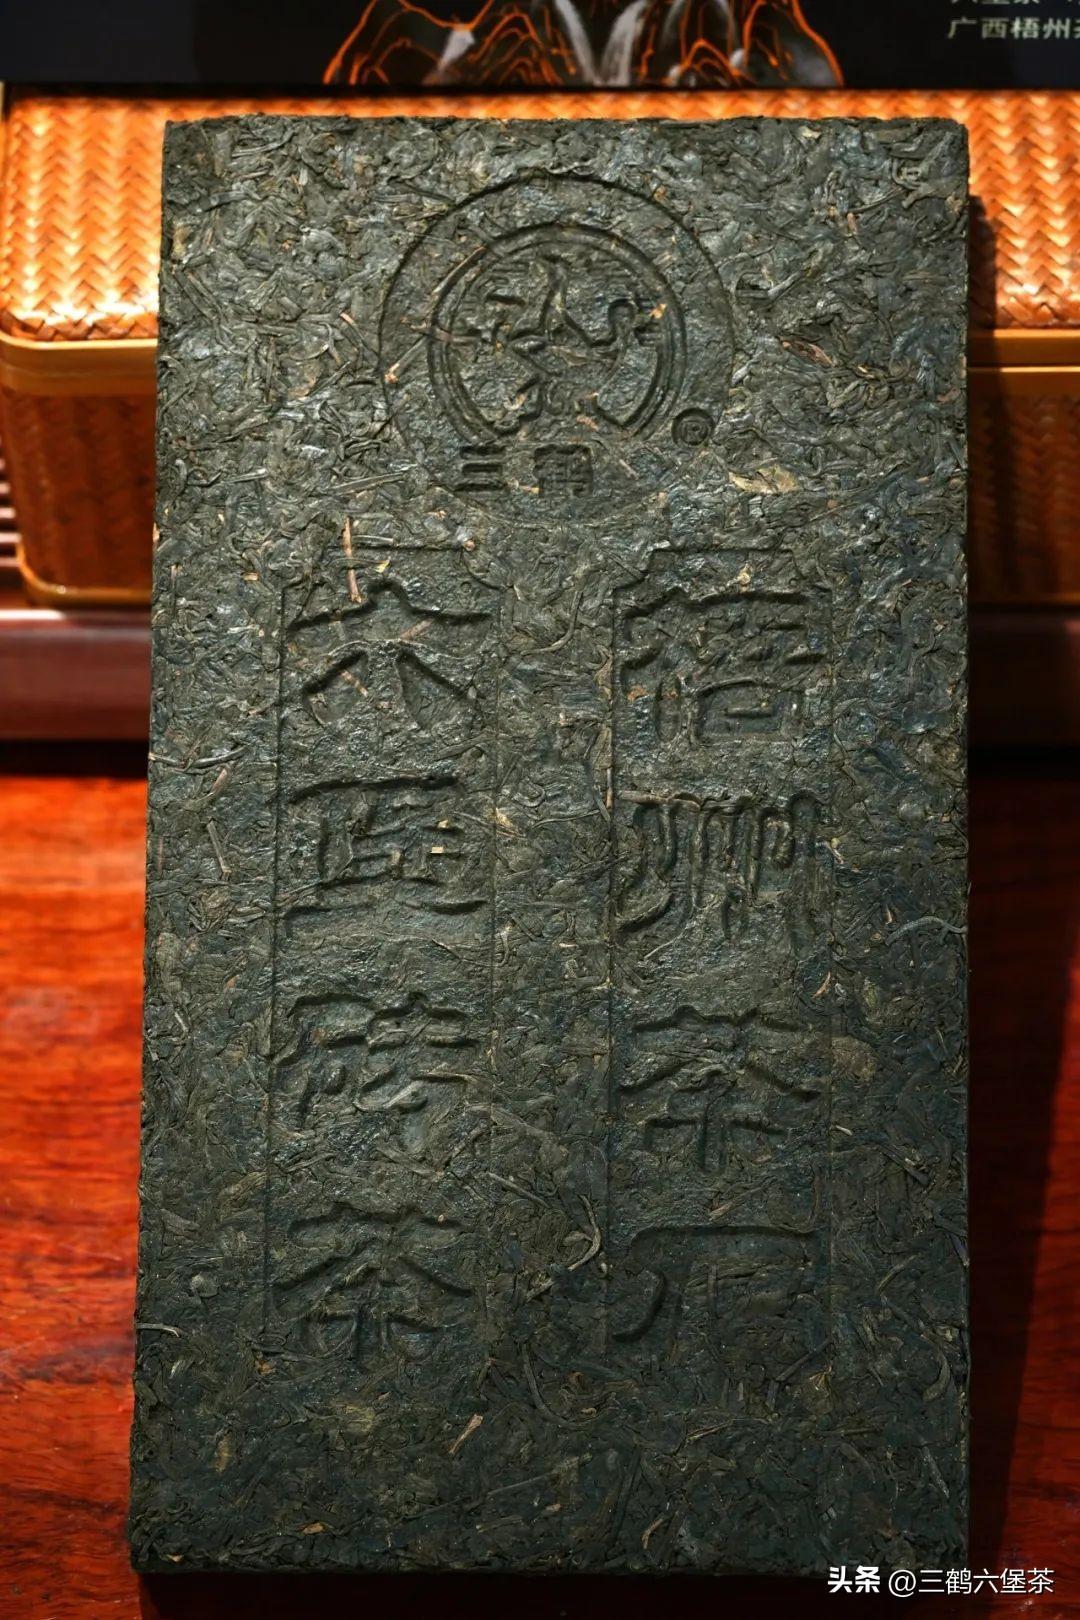 广西梧州
三鹤
®
梧州茶厂
六堡砖茶
头条 @三鹤六堡茶